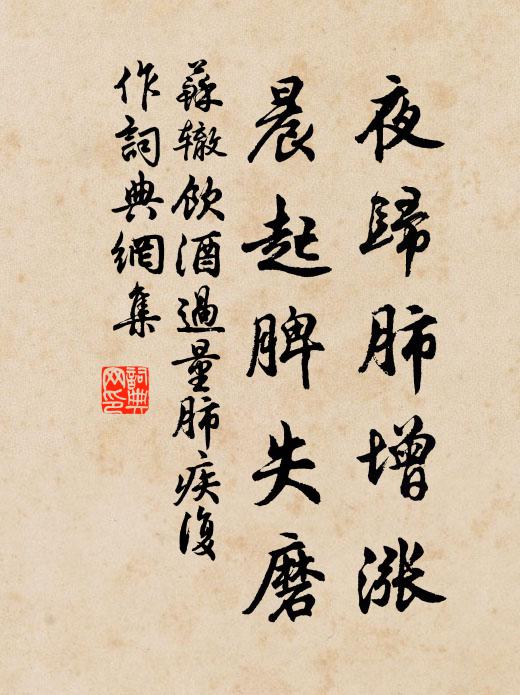 夜歸肺增漲
晨起脾失磨
蘇辙飲酒過量肺疾復
作詞典網集
詞典網印